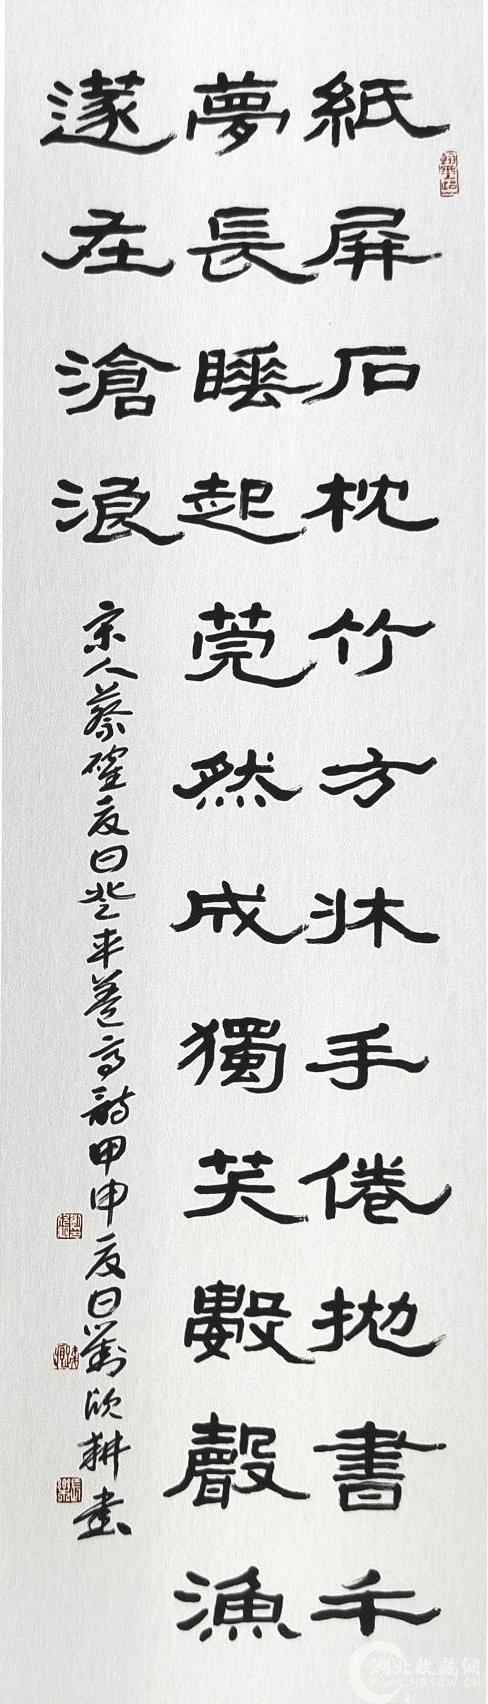 紙屏石枕竹方牀手倦拋書午
夢長睡起莞然成獨笑數聲漁
篴在滄浪
宋人蔡確夏日登車蓋亭詩甲申夏日劉欣耕書
湖北收藏網